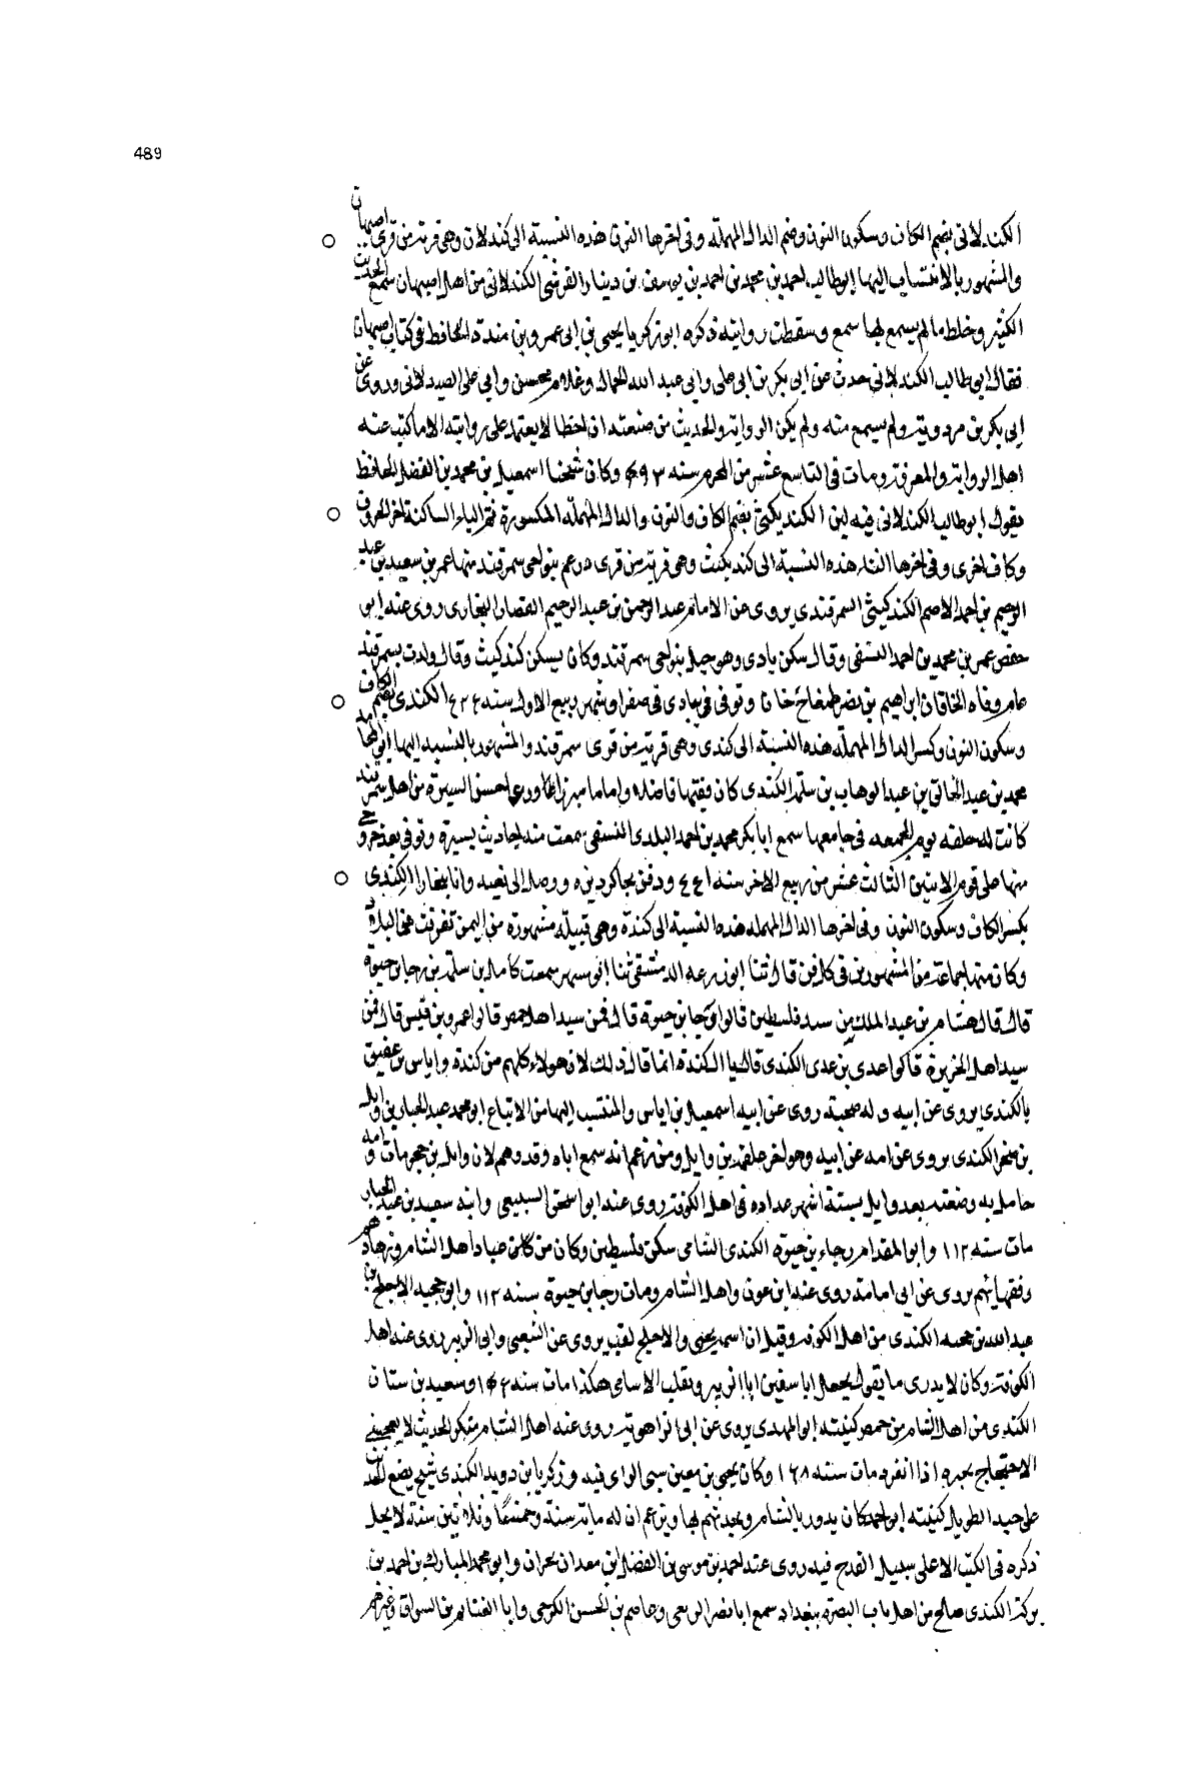 489
الكندلانى بضم الكاف وسكون النون وضم الدال المهملة وفى اخرها النون هذه النسبة الى كندلان وهى قرية من قرى اصبهان
والمشهور بالانتساب اليها ابوطالب احمد بن محمد بن احمد بن يوسف بن دينار القرشى الكندلانى من اهل اصبهان سمع الحديث
الكثير وخلط ما لم يسمع بما سمع وسقطت روايته ذكره ابو زكريا يحيى بن ابى عمرو بن مندة الحافظ فى كتاب اصبهان
فقال ابوطالب الكندلانى حدث عن ابى بكر بن ابى على وابى عبد الله الجمال وغلام محسن وابى على الصيدلانى وروى عن
ابى بكر بن مردويه ولم يسمع منه ولم يكن الرواية والحديث من صنعته ان اخطا لا يعتمد على روايته الا ما كتب عنه
اهل الرواية والمعرفة ومات فى التاسع عشر من المحرم سنه ۴۹۳ وكان شيخنا اسمعيل بن محمد بن الفضل الحافظ
يقول ابوطالب الكندلانى فيه لين الكنديكثى بضم الكاف والنون والدال المهملة المكسورة ثم الياء الساكنة اخر الحروف
وكاف اخرى وفى اخرها الثاء هذه النسبة الى كنديكث وهى قرية من قرى درغم بنواحى سمرقند منها عمر بن سعيد بن عبد
الرحيم بن احمد الاصم الكندكيثى السمرقندى يروى عن الامام عبد الرحمن بن عبد الرحيم القصار البخارى روى عنه ابو
حفص عمر بن محمد بن احمد النسفى وقال سكن يادى وهو جبل بنواحى سمرقند وكان يسكن كندكيث وقال ولدت بسمرقند
عام وفاة الخاقان ابراهيم بن نصر طمغاج خان وتوفى فى يادى فى صفر او شهر ربيع الاول سنه الكندى بضم الكاف
وسكون النون وكسر الدال المهملة هذه النسبة الى كندى وهى قرية من قرى سمرقند والمشهور بالنسبة اليها ابو المحامد
محمد بن عبد الخالق بن عبد الوهاب بن سلمة الكندى كان فقيها فاضلا واماما مبرزا عالما ورعا حسن السيرة من اهل سمرقند
كانت له حلقه يوم الجمعه فى جامعها سمع ابا بكر محمد بن احمد البلدى النسفى سمعت منه احاديث يسيرة وتوفى بعد خروجى
منها على يوم الاثنين الثالث عشر من ربيع الاخر سنه ودفن بجاكرديزه ووصل الى نعيه وانا ببخارا الكندى
بكسر الكاف وسكون النون وفى اخرها الدال المهمله هذه النسبة الى كندة وهى قبيلة مشهورة من اليمن تفرقت فى البلاد
وكان منها جماعة من المشهورين فى كل فن قال ثنا ابو زرعه الدمشقى ثنا ابو مسهر سمعت كامل بن سلمة بن رجا بن حيوة
قال قال هشام بن عبد الملك من سيد فلسطين قالوا رجا بن حيوة قال فمن سيد اهل حمص قالوا عمرو بن قيس قال فمن
سيد اهل الجزيرة قالوا عدى بن عدى الكندى قال يا آل كندة انما قال ذلك لان هولاء كلهم من كندة واياس بن عفيف
الكندى يروى عن ابيه وله صحبة روى عن ابيه اسمعيل بن اياس والمنتسب اليها من الاتباع ابو محمد عبد الجبار بن وايل
بن حجر الكندى يروى عن امه عن ابيه وهو اخو علقمة بن وايل ومن زعم انه سمع اباه وقد وهم لان وايل بن حجر مات وامه
حامل به وضعته بعد وايل بستة اشهر عداده فى اهل الكوفة روى عنه ابو اسحق السبيعى وابنه سعيد بن عبد الجبار
مات سنه ١١٢ وابو المقدام رجاء بن حيوة الكندى الشامى سكن فلسطين وكان من عباد اهل الشام وزهادهم
وفقهائهم يروى عن ابى امامة روى عنه ابن عون واهل الشام ومات رجا بن حيوة سنه ١١٢ وابو حجيه الاجلح بن
عبد الله بن حجيه الكندى من اهل الكوفة وقيل ان اسمه يحيى والاجلح لقب يروى عن الشعبى وابى الزبير روى عنه اهل
الكوفة وكان لا يدرى ما يقول يجعل ابا سفين ابا الزبير ويقلب الاسامى هكذا مات سنه وسعيد بن سنان
الكندى من اهل الشام من حمص كنيته ابو المهدى يروى عن ابى الزاهرية روى عنه اهل الشام منكر الحديث لا يعجبنى
الاحتجاج بخبره اذا انفرد مات سنه ١٦٨ وكان يحيى بن معين سىء الراى فيه وزكريا بن دويد الكندى شيخ يضع الحديث
على حميد الطويل كنيته ابو احمد كان يدور بالشام ويحدثهم بها ويزعم ان له ماية سنة وخمسا وثلاثين سنة لا يحل
ذكره فى الكتب الا على سبيل القدح فيه روى عنه احمد بن موسى بن الفضل بن معدان بحران وابو محمد المبارك بن احمد بن
بركة الكندى صالح من اهل باب البصرة ببغداد سمع ابا نصر الزينبى وعاصم بن الحسن الكرجى وابا الغنائم بن السواق وغيرهم